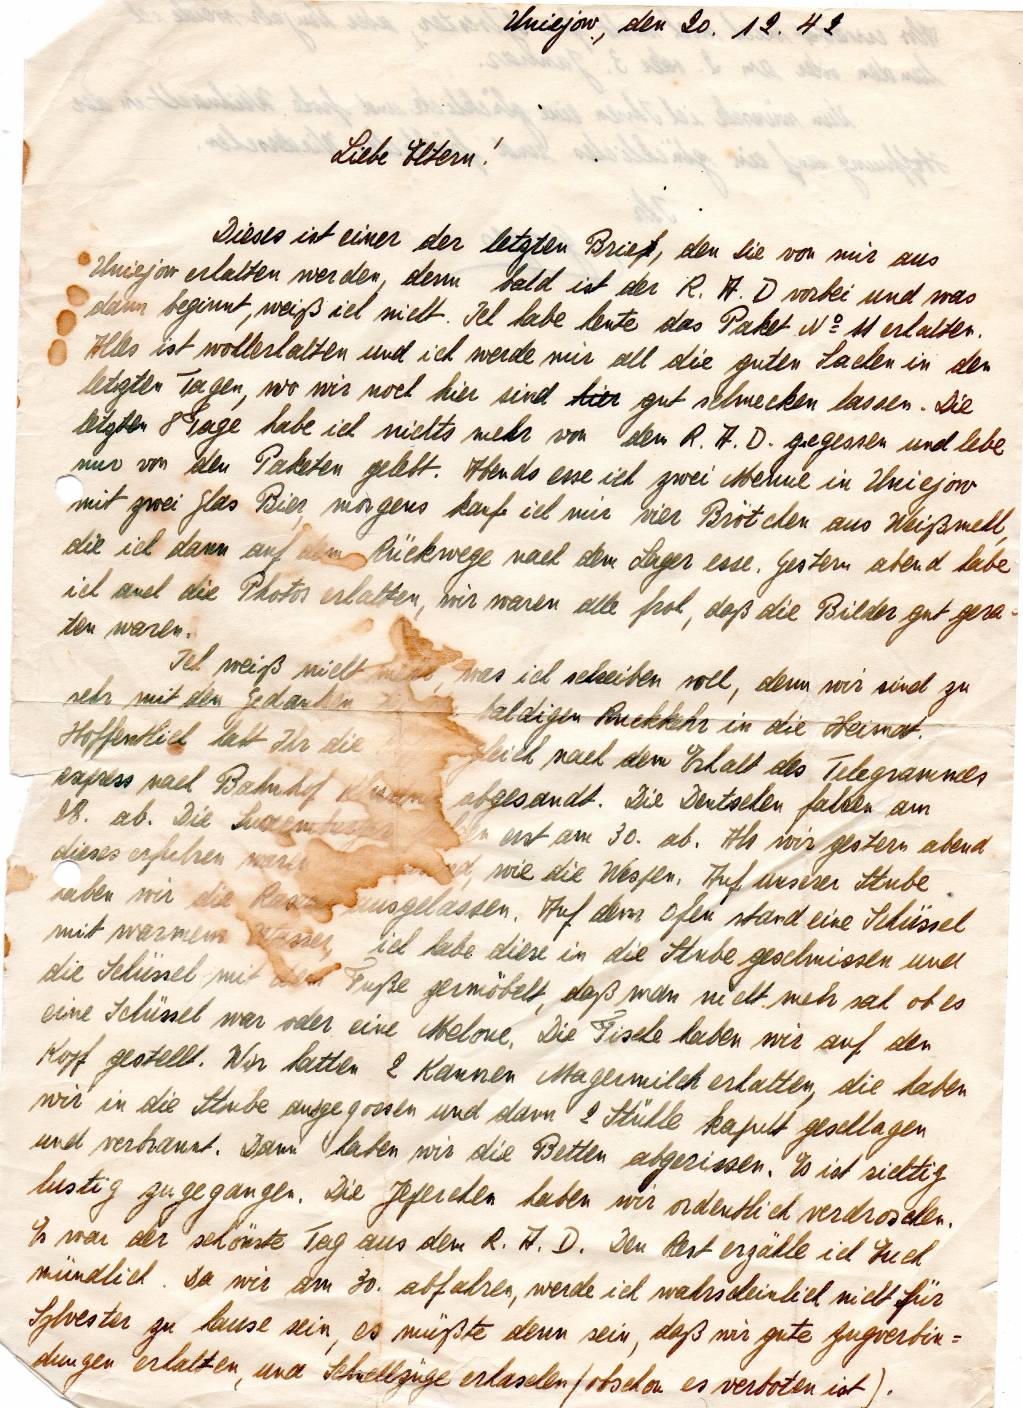 Uniejow, den 20. 12. 42
Liebe Eltern!
Dieses ist einer der letzten Brief, den Sie von mir aus
Uniejow erhalten werden, denn bald ist der R. A. D vorbei und was
dann beginnt, weiß ich nicht. Ich habe heute das Paket No 11 erhalten.
Alles ist wohlerhalten und ich werde mir all die guten Sachen in den
letzten Tagen, wo wir noch hier sind hier gut schmecken lassen. Die
letzten 8 Tage habe ich nichts mehr von dem R. A. D. gegessen und lebe
nur von den Paketen gelebt. Abends esse ich zwei Menue in Uniejow
mit zwei Glas Bier, morgens kauf ich mir vier Brötchen aus Weißmehl,
die ich dann auf dem Rückwege nach dem Lager esse. Gestern abend habe
ich auch die Photos erhalten, wir waren alle froh, daß die Bilder gut gera-
ten waren.
Ich weiß nicht mehr, was ich schreiben soll, denn wir sind zu
sehr mit den Gedanken baldigen Rückkehr in die Heimat.
Hoffentlich habt Ihr die gleich nach dem Erhalt des Telegrammes
express nach Bahnhof abgesandt. Die Deutschen fahren am
28. ab. Die Luxemburger erst am 30. ab. Als wir gestern abend
dieses erfuhren waren wie die Wespen. Auf unserer Stube
haben wir die ausgelassen. Auf dem Ofen stand eine Schüssel
mit warmem Wasser, ich habe diese in die Stube geschmissen und
die Schüssel mit dem Fuße germöbelt, daß man nicht mehr sah ob es
eine Schüssel war oder eine Melone. Die Tische haben wir auf den
Kopf gestellt. Wir hatten 2 Kannen Magermilch erhalten, die haben
wir in die Stube ausgegossen und dann 2 Stühle kaputt geschlagen
und verbrannt. Dann haben wir die Betten abgerissen. Es ist richtig
lustig zugegangen. Die haben wir ordentlich verdroschen.
Es war der schönste Tag aus dem R. A. D. Den Rest erzähle ich Euch
mündlich. Da wir am 30. abfahren, werde ich wahrscheinlich nicht für
Sylvester zu hause sein, es müßte denn sein, daß wir gute Zugverbin=
dungen erhalten, und Schnellzüge erhaschen (obschon es verboten ist).